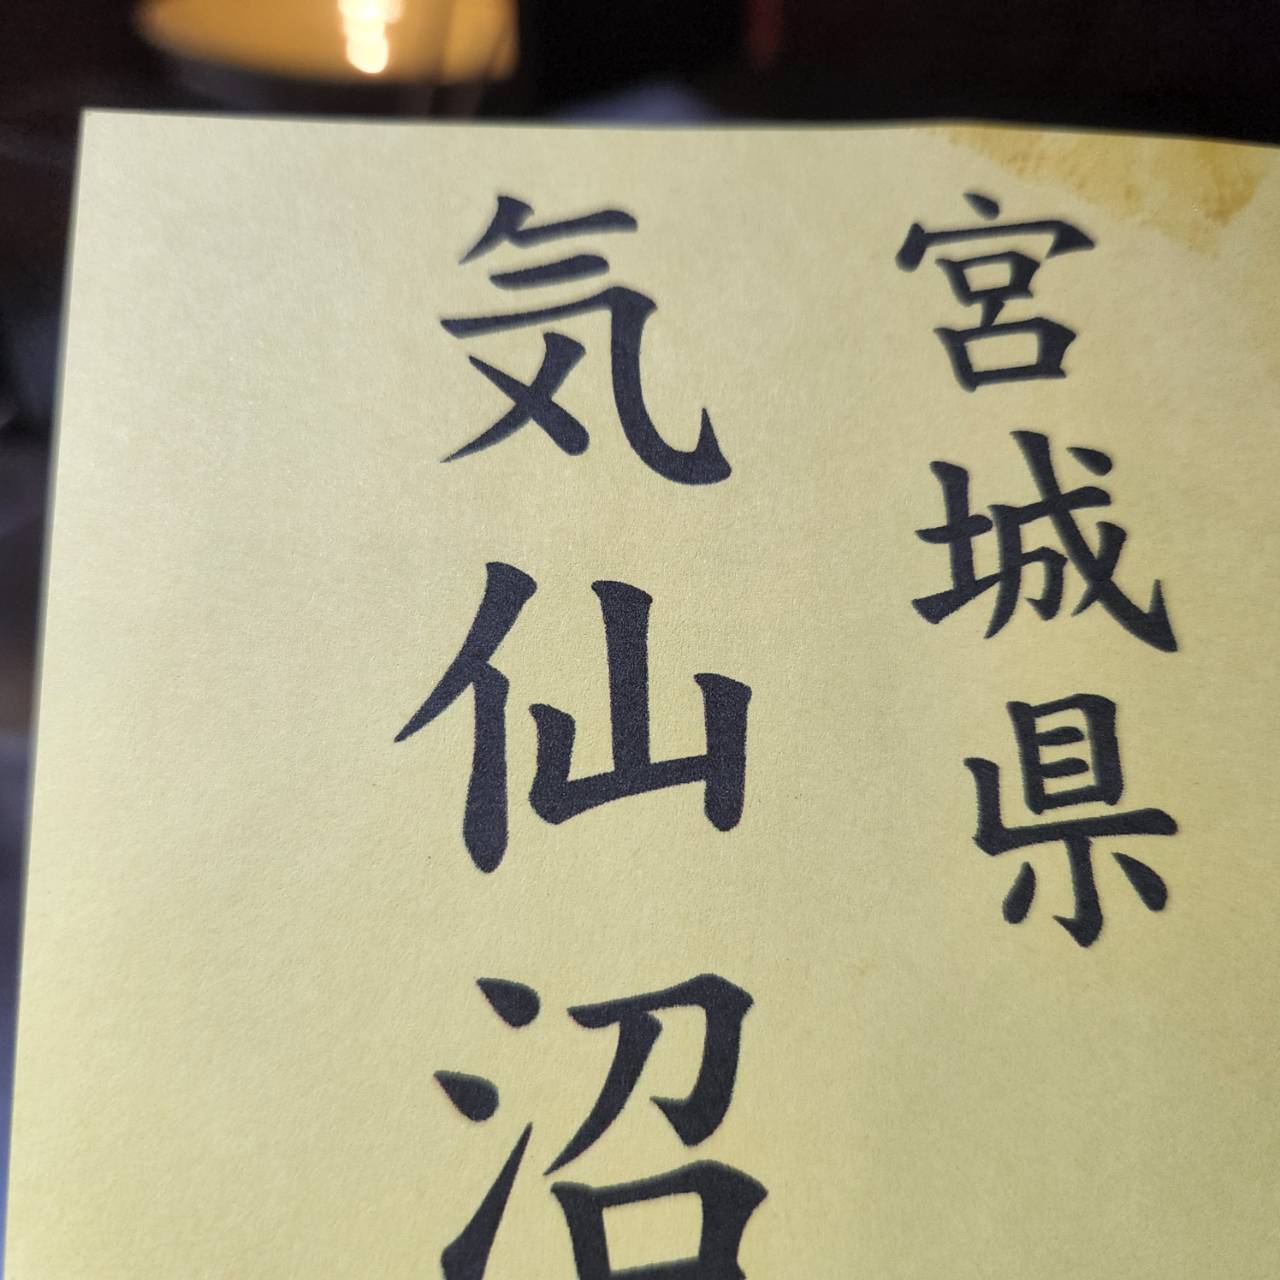 宮城県
気仙沼